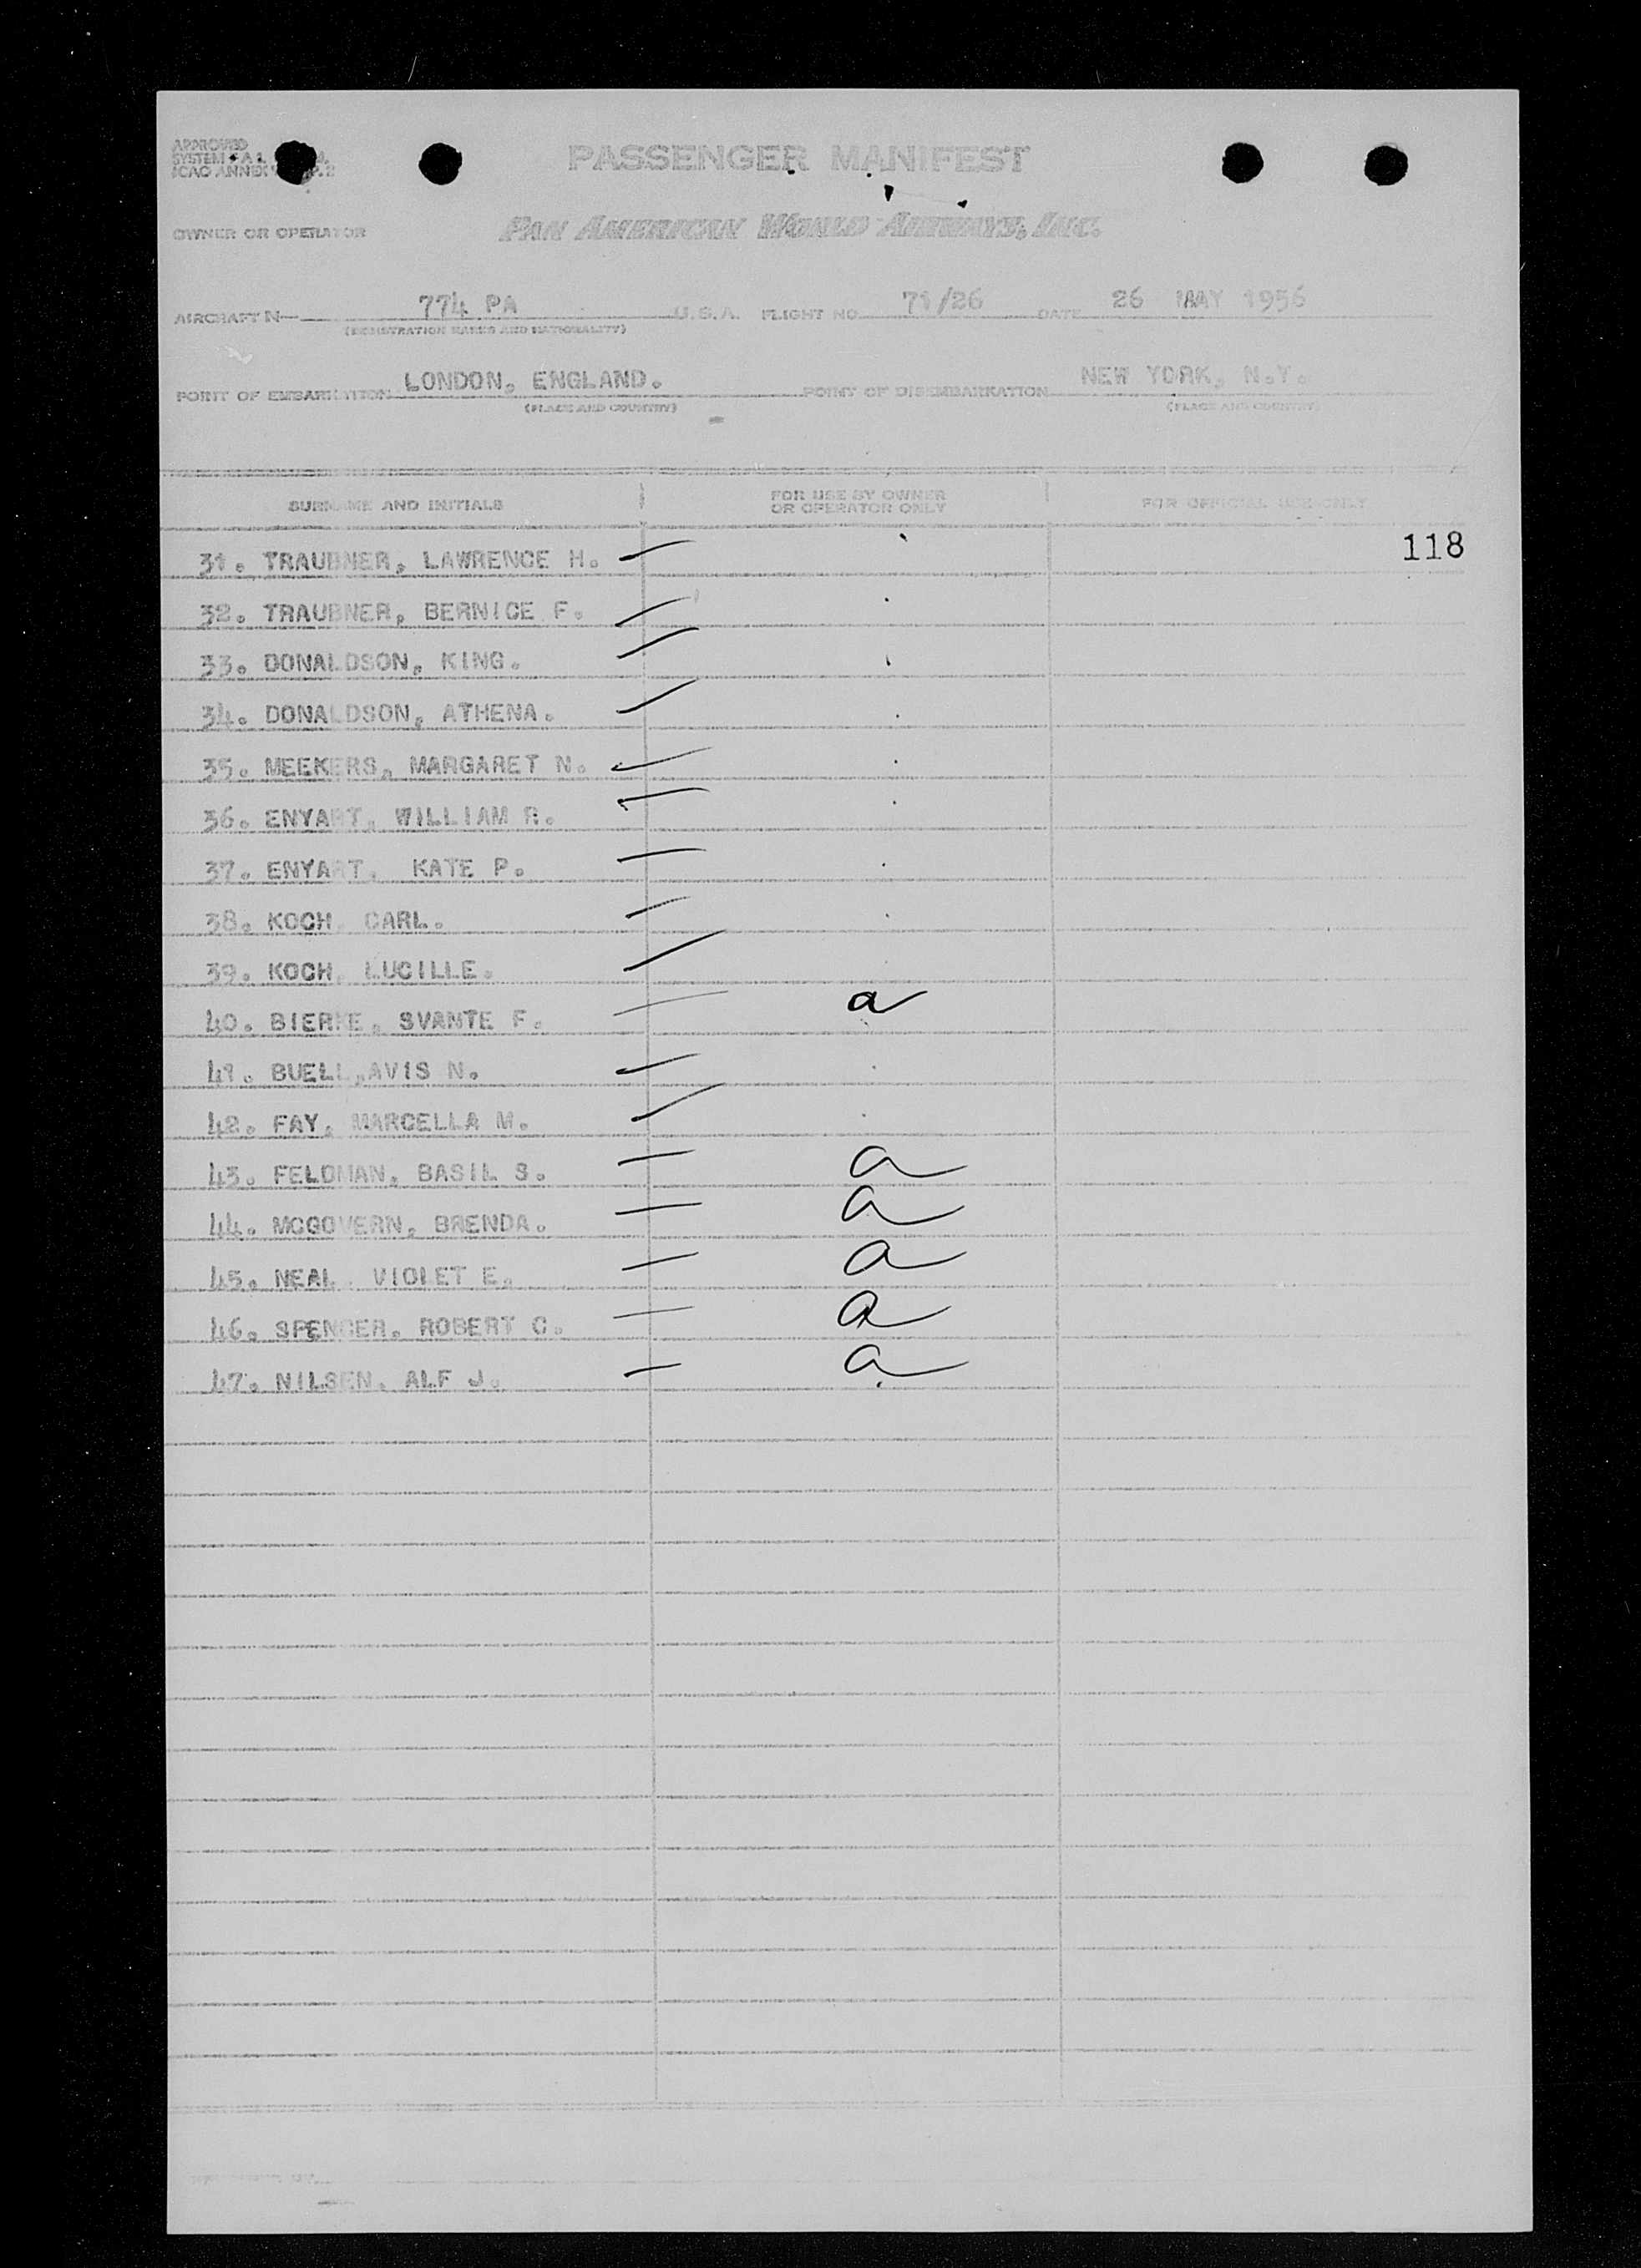 APPROVED
SYSTEM
ICAO ANNEX
PASSENGER MANIFEST
OWNER OR OPERATOR PAN AMERICAN WORLD AIRWAYS, INC.
AIRCRAFT N— 774 PA U.S.A. FLIGHT NO. 71/26 DATE 26 MAY 1956
(REGISTRATION MARKS AND NATIONALITY)
POINT OF EMBARKATION LONDON, ENGLAND. POINT OF DISEMBARKATION NEW YORK, N.Y.
(PLACE AND COUNTRY) (PLACE AND COUNTRY)
SURNAME AND INITIALS FOR USE BY OWNER OR OPERATOR ONLY FOR OFFICIAL USE ONLY
118
31. TRAUBNER, LAWRENCE H.
32. TRAUBNER, BERNICE F.
33. DONALDSON, KING.
34. DONALDSON, ATHENA.
35. MEEKERS, MARGARET N.
36. ENYART, WILLIAM R.
37. ENYART, KATE P.
38. KOCH, CARL.
39. KOCH, LUCILLE.
40. BIERKE, SVANTE F. a
41. BUELL, AVIS N.
42. FAY, MARCELLA M.
43. FELDMAN, BASIL S. a
44. MCGOVERN, BRENDA. a
45. NEAL, VIOLET E. a
46. SPENCER, ROBERT C. a
47. NILSEN, ALF J. a